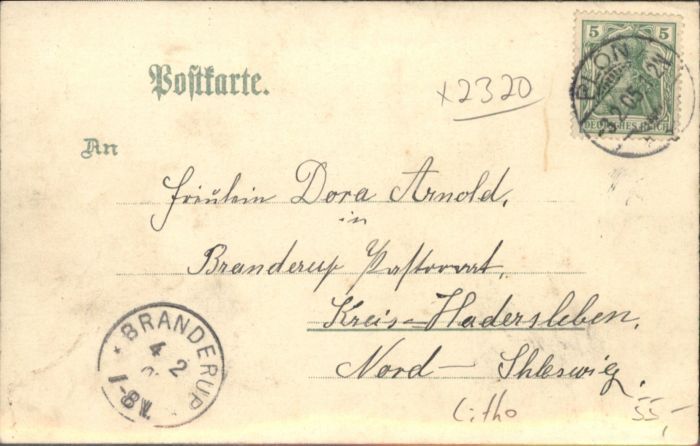 5 5
DEUTSCHES REICH
PLÖN
3.2.05. 12N
Postkarte.
x2320
An
Fräulein Dora Arnold,
in
Branderup Pastorat,
Kreis-Hadersleben,
Nord-Shleswig.
* BRANDERUP
4 2
1-8V.
Litho
55,-